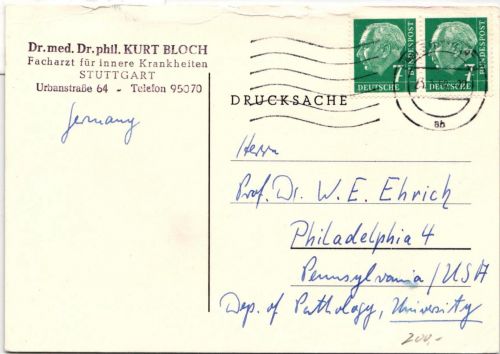 Dr. med. Dr. phil. KURT BLOCH
Facharzt für innere Krankheiten
STUTTGART
Urbanstraße 64 - Telefon 95070
Germany
7 DEUTSCHE BUNDESPOST
7 DEUTSCHE BUNDESPOST
DRUCKSACHE
Herrn
Prof. Dr. W. E. Ehrich
Philadelphia 4
Pennsylvania/USA
Dep. of Pathology, University
200,-